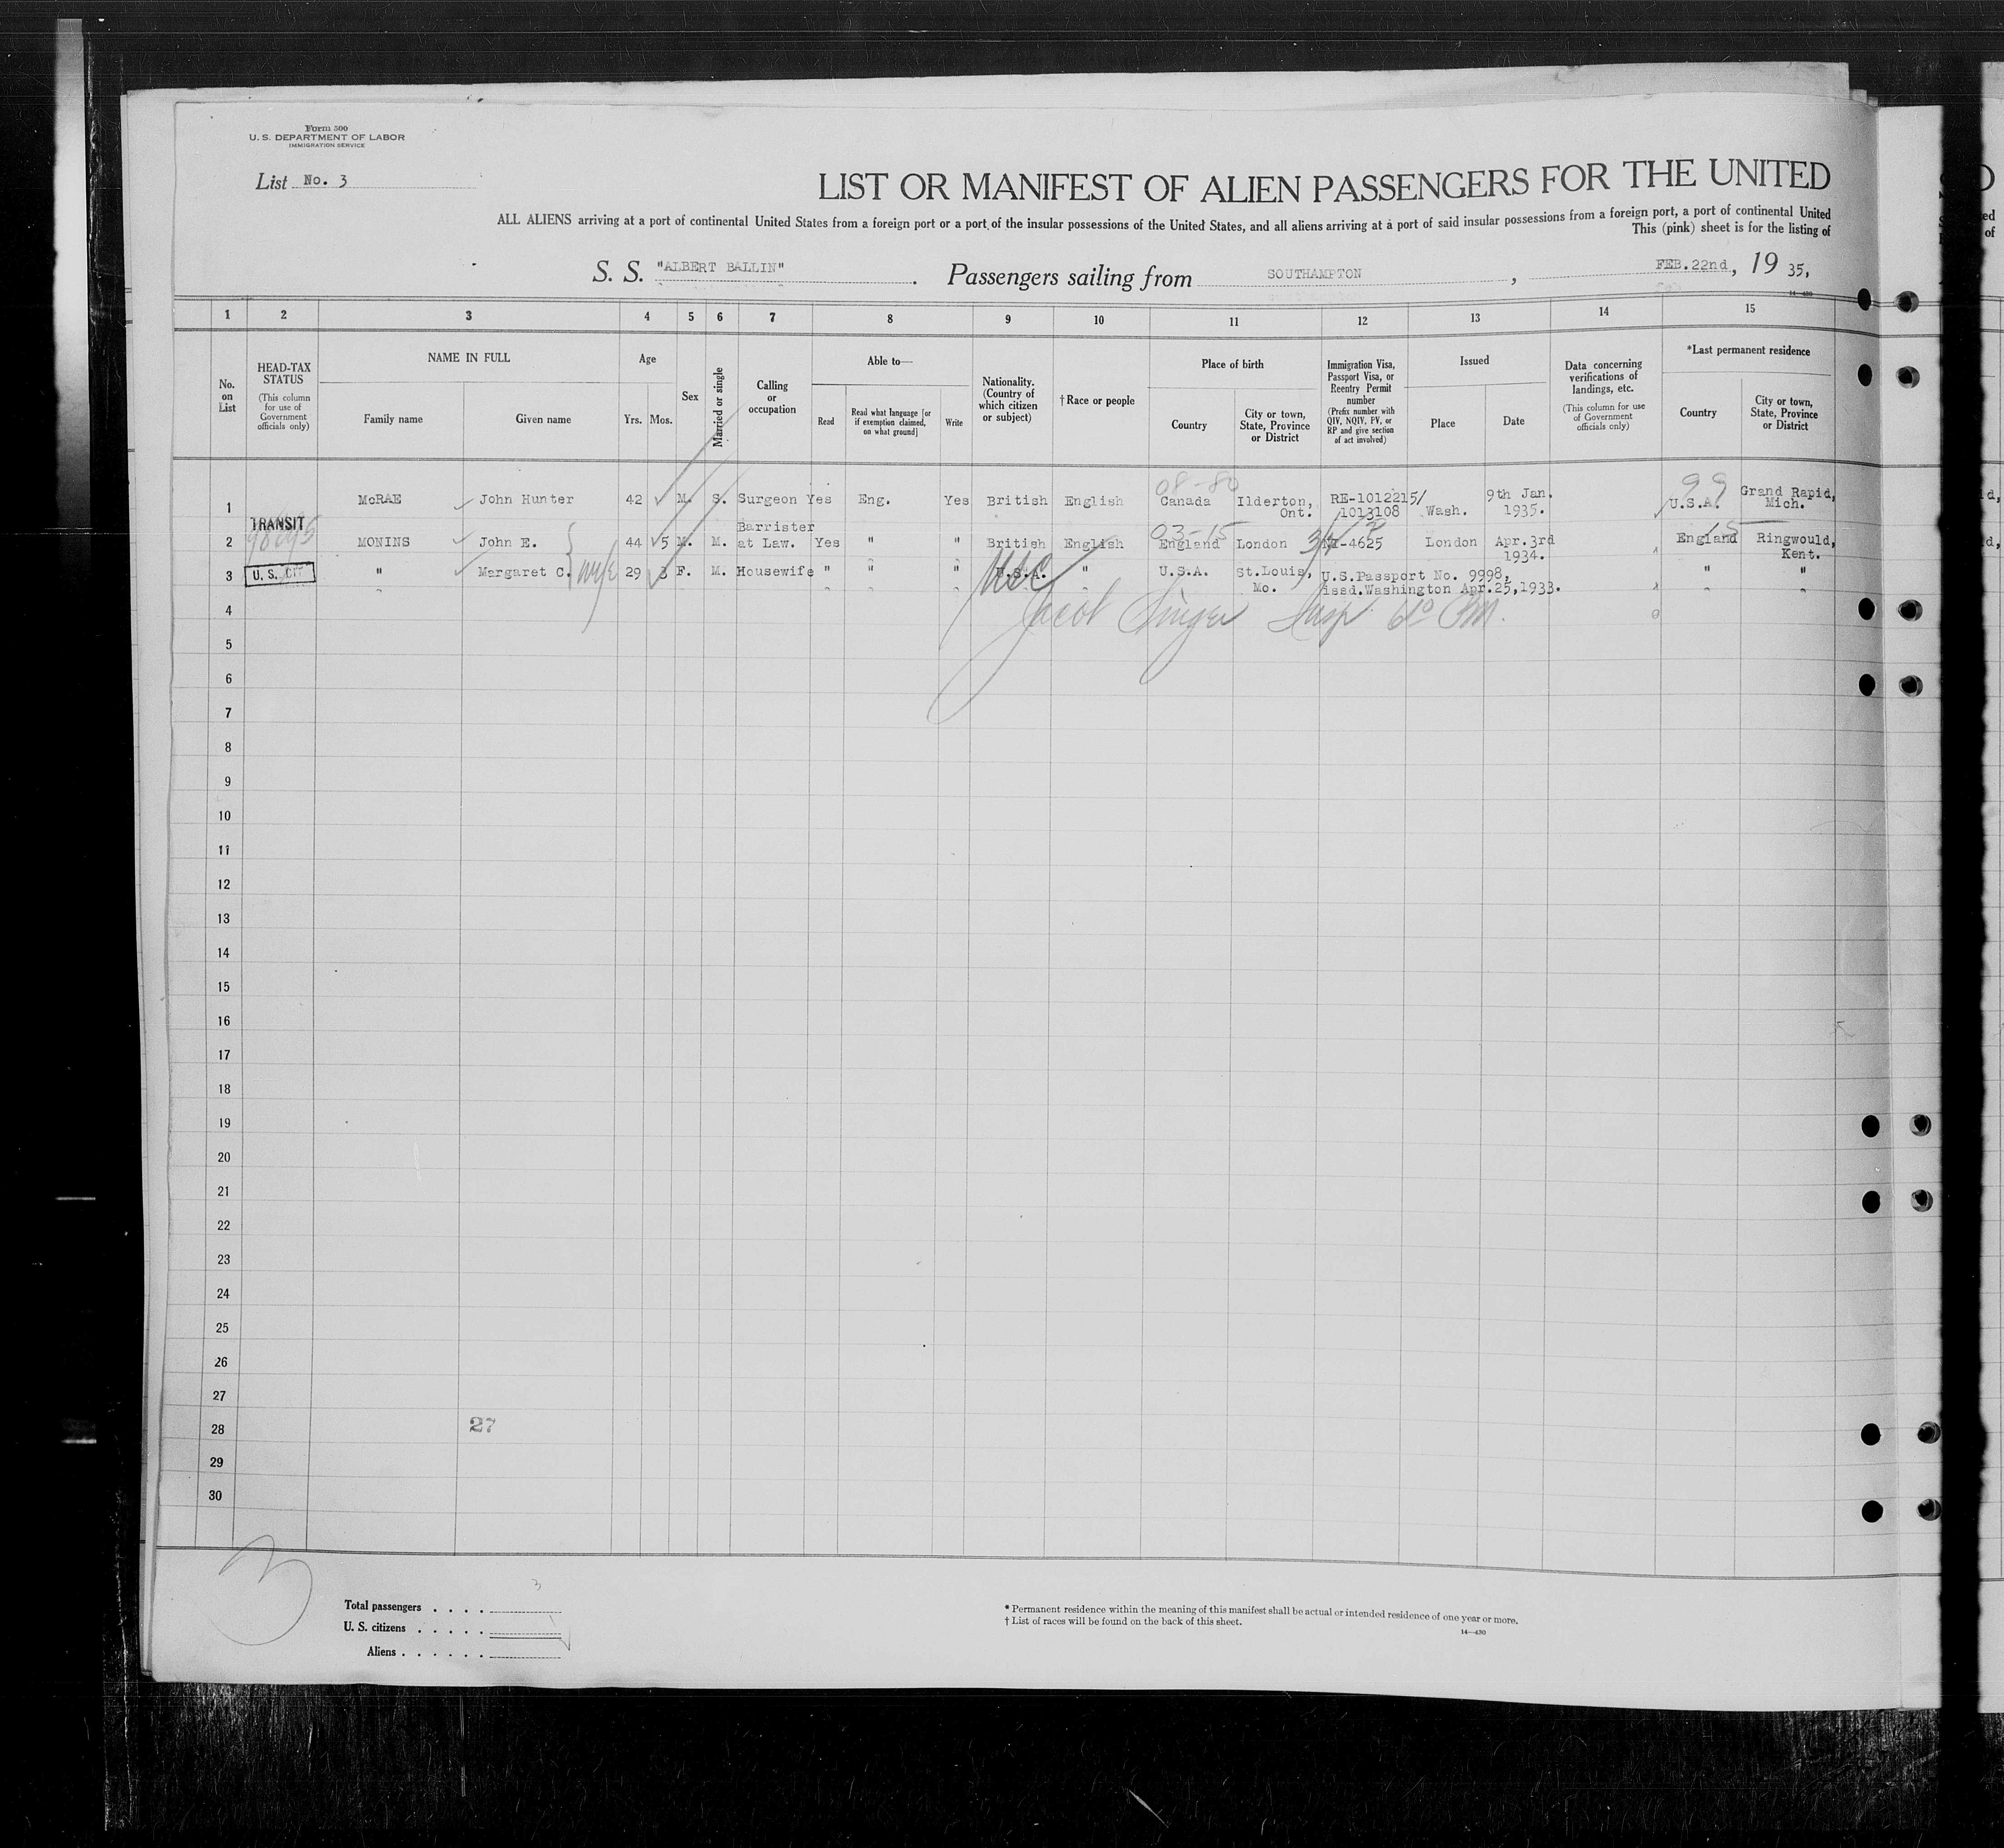 Form 500
U. S. DEPARTMENT OF LABOR
IMMIGRATION SERVICE
List No. 3
LIST OR MANIFEST OF ALIEN PASSENGERS FOR THE UNITED
ALL ALIENS arriving at a port of continental United States from a foreign port or a port of the insular possessions of the United States, and all aliens arriving at a port of said insular possessions from a foreign port, a port of continental United
This (pink) sheet is for the listing of
S. S. "ALBERT BALLIN". Passengers sailing from SOUTHAMPTON, FEB.22nd, 19 35,
14—430
1 2 3 4 5 6 7 8 9 10 11 12 13 14 15
No. on List
HEAD-TAX STATUS
(This column for use of Government officials only)
NAME IN FULL
Family name
Given name
Age
Yrs. Mos.
Sex
Married or single
Calling or occupation
Able to—
Read
Read what language [or if exemption claimed, on what ground]
Write
Nationality. (Country of which citizen or subject)
† Race or people
Place of birth
Country
City or town, State, Province or District
Immigration Visa, Passport Visa, or Reentry Permit number
(Prefix number with QIV, NQIV, PV, or RP and give section of act involved)
Issued
Place
Date
Data concerning verifications of landings, etc.
(This column for use of Government officials only)
*Last permanent residence
Country
City or town, State, Province or District
08-80 99
1 McRAE John Hunter 42 M. S. Surgeon Yes Eng. Yes British English Canada Ilderton, Ont. RE-1012215/ 1013108 Wash. 9th Jan. 1935. U.S.A. Grand Rapid, Mich.
TRANSIT
03-15 15
2 MONINS John E. 44 5 M. M. Barrister at Law. Yes " " British English England London -4625 London Apr.3rd 1934. England Ringwould, Kent.
3 U. S. CIT " Margaret C. wife 29 3 F. M. Housewife " " " U.S.A. USC " U.S.A. St.Louis, Mo. U.S.Passport No. 9998, issd.Washington Apr.25,1933. " "
Jacob Singer Insp
4
5
6
7
8
9
10
11
12
13
14
15
16
17
18
19
20
21
22
23
24
25
26
27
28 27
29
30
3
Total passengers . . . . 3
U. S. citizens . . . . . 1
Aliens . . . . . .
* Permanent residence within the meaning of this manifest shall be actual or intended residence of one year or more.
† List of races will be found on the back of this sheet.
14—430